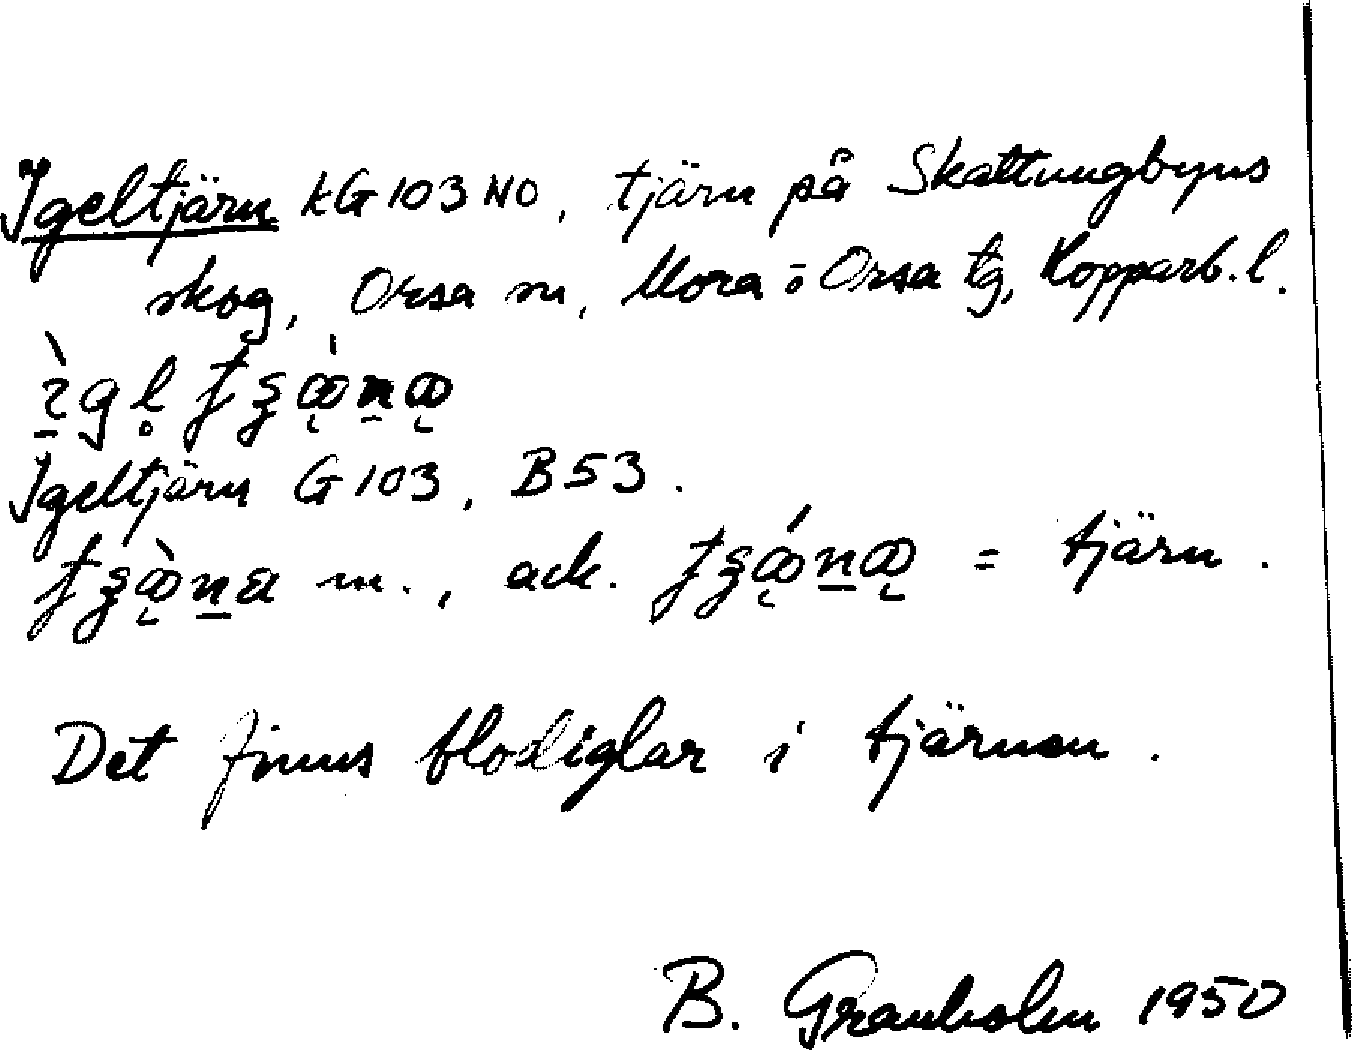 Igeltjärn kG 103 NO, tjärn på Skattungbyns
skog, Orsa sn, Mora o Orsa tg, Kopparb. l.
Igeltjärn G 103, B 53.
m., ack. = tjärn.
Det finns blodiglar i tjärnen.
B. Granholm 1950